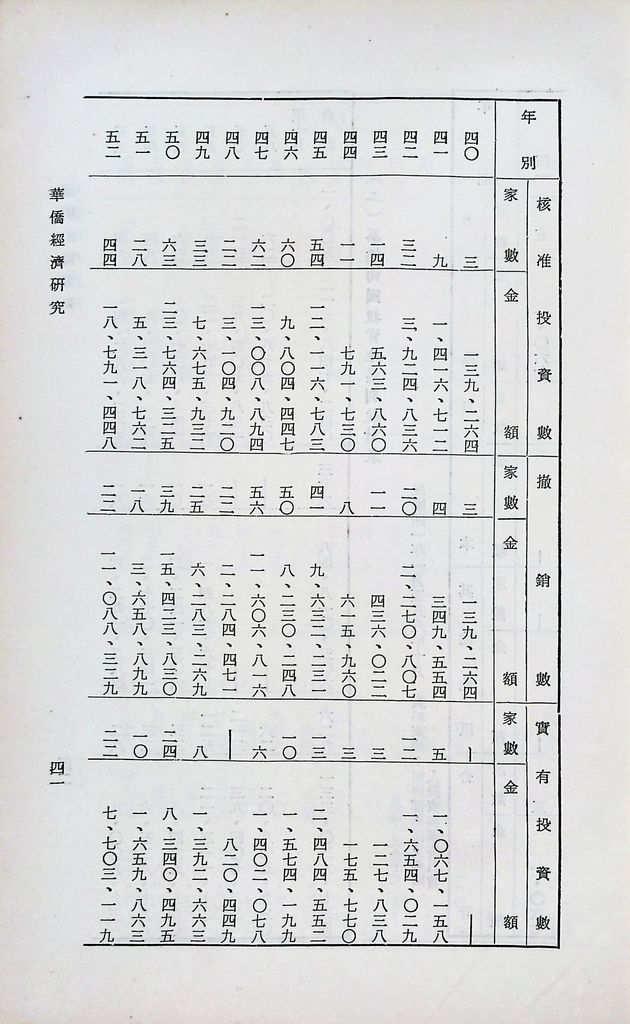 年別 核准投資數 撤銷數 實有投資數
家數 金額 家數 金額 家數 金額
四〇 三 一三九、二六四 三 一三九、二六四 — —
四一 九 一、四一六、七一二 四 三四九、五五四 五 一、〇六七、一五八
四二 三二 三、九二四、八三六 二〇 二、二七〇、八〇七 一二 一、六五四、〇二九
四三 一四 五六三、八六〇 一一 四三六、〇二二 三 一二七、八三八
四四 一一 七九一、七三〇 八 六一五、九六〇 三 一七五、七七〇
四五 五四 一二、一一六、七八三 四一 九、六三二、二三一 一三 二、四八四、五五二
四六 六〇 九、八〇四、四四七 五〇 八、二三〇、二四八 一〇 一、五七四、一九九
四七 六二 一三、〇〇八、八九四 五六 一一、六〇六、八一六 六 一、四〇二、〇七八
四八 二二 三、一〇四、九二〇 二二 二、二八四、四七一 — 八二〇、四四九
四九 三三 七、六七五、九三二 二五 六、二八三、二六九 八 一、三九二、六六三
五〇 六三 二三、七六四、三二五 三九 一五、四二三、八三〇 二四 八、三四〇、四九五
五一 二八 五、三一八、七六二 一八 三、六五八、八九九 一〇 一、六五九、八六三
五二 四四 一八、七九一、四四八 二二 一一、〇八八、三二九 二二 七、七〇三、一一九
華僑經濟研究
四一